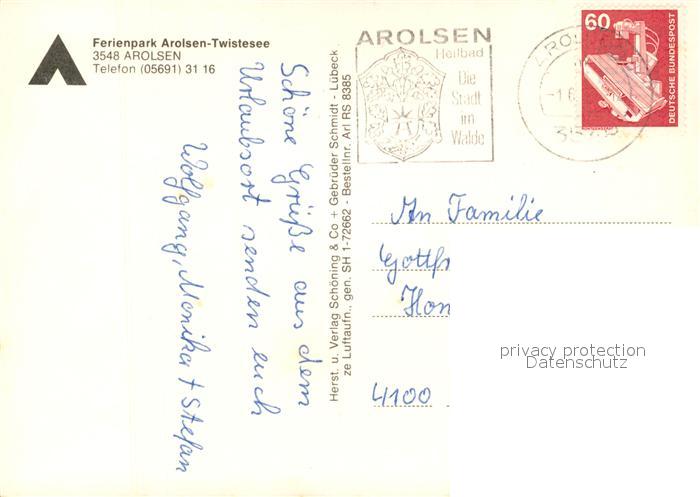 Ferienpark Arolsen-Twistesee
3548 AROLSEN
Telefon (05691) 31 16
Schöne Grüße aus dem
Urlaubsort senden euch
Wolfgang, Monika + Stefan
Herst. u. Verlag Schöning & Co + Gebrüder Schmidt - Lübeck
ze Luftaufn., gen. SH 1-72662 - Bestellnr. Arl RS 8385
AROLSEN
Heilbad
Die
Stadt
im
Walde
60
DEUTSCHE BUNDESPOST
An Familie
4100
privacy protection
Datenschutz